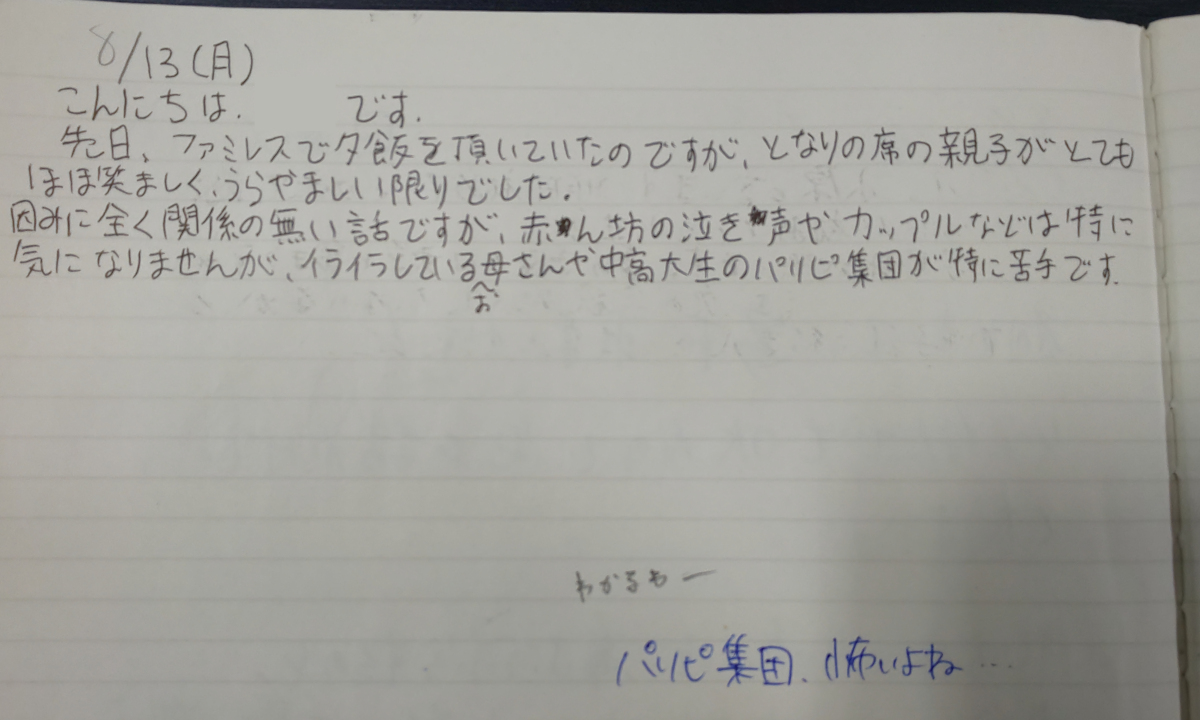 8/13(月)
こんにちは. です.
先日、ファミレスで夕飯を頂いていたのですが、となりの席の親子がとても
ほほ笑ましく、うらやましい限りでした.
因みに全く関係の無い話ですが、赤ん坊の泣き声やカップルなどは特に
気になりませんが、イライラしているお母さんや中高大生のパリピ集団が特に苦手です.
わかるわー
パリピ集団、怖いよね…